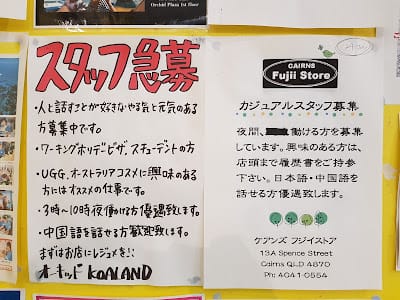 Orchid Plaza 1st Floor
スタッフ急募
・人と話すことが好きなやる気と元気のある
方募集中です。
・ワーキングホリデービザ、スチューデントの方
・UGG、オーストラリアコスメに興味のある
方にはオススメの仕事です。
・3時〜10時夜働ける方優遇致します。
・中国語を話せる方歓迎致します。
まずはお店にレジュメを!!
オーキッド KOALAND
CAIRNS
Fujii Store
カジュアルスタッフ募集
夜間、働ける方を募集
しています。興味のある方は、
店頭まで履歴書をご持参
下さい。日本語・中国語を
話せる方優遇致します。
ケアンズ フジイストア
13A Spence Street
Cairns QLD 4870
Ph: 4041-0554